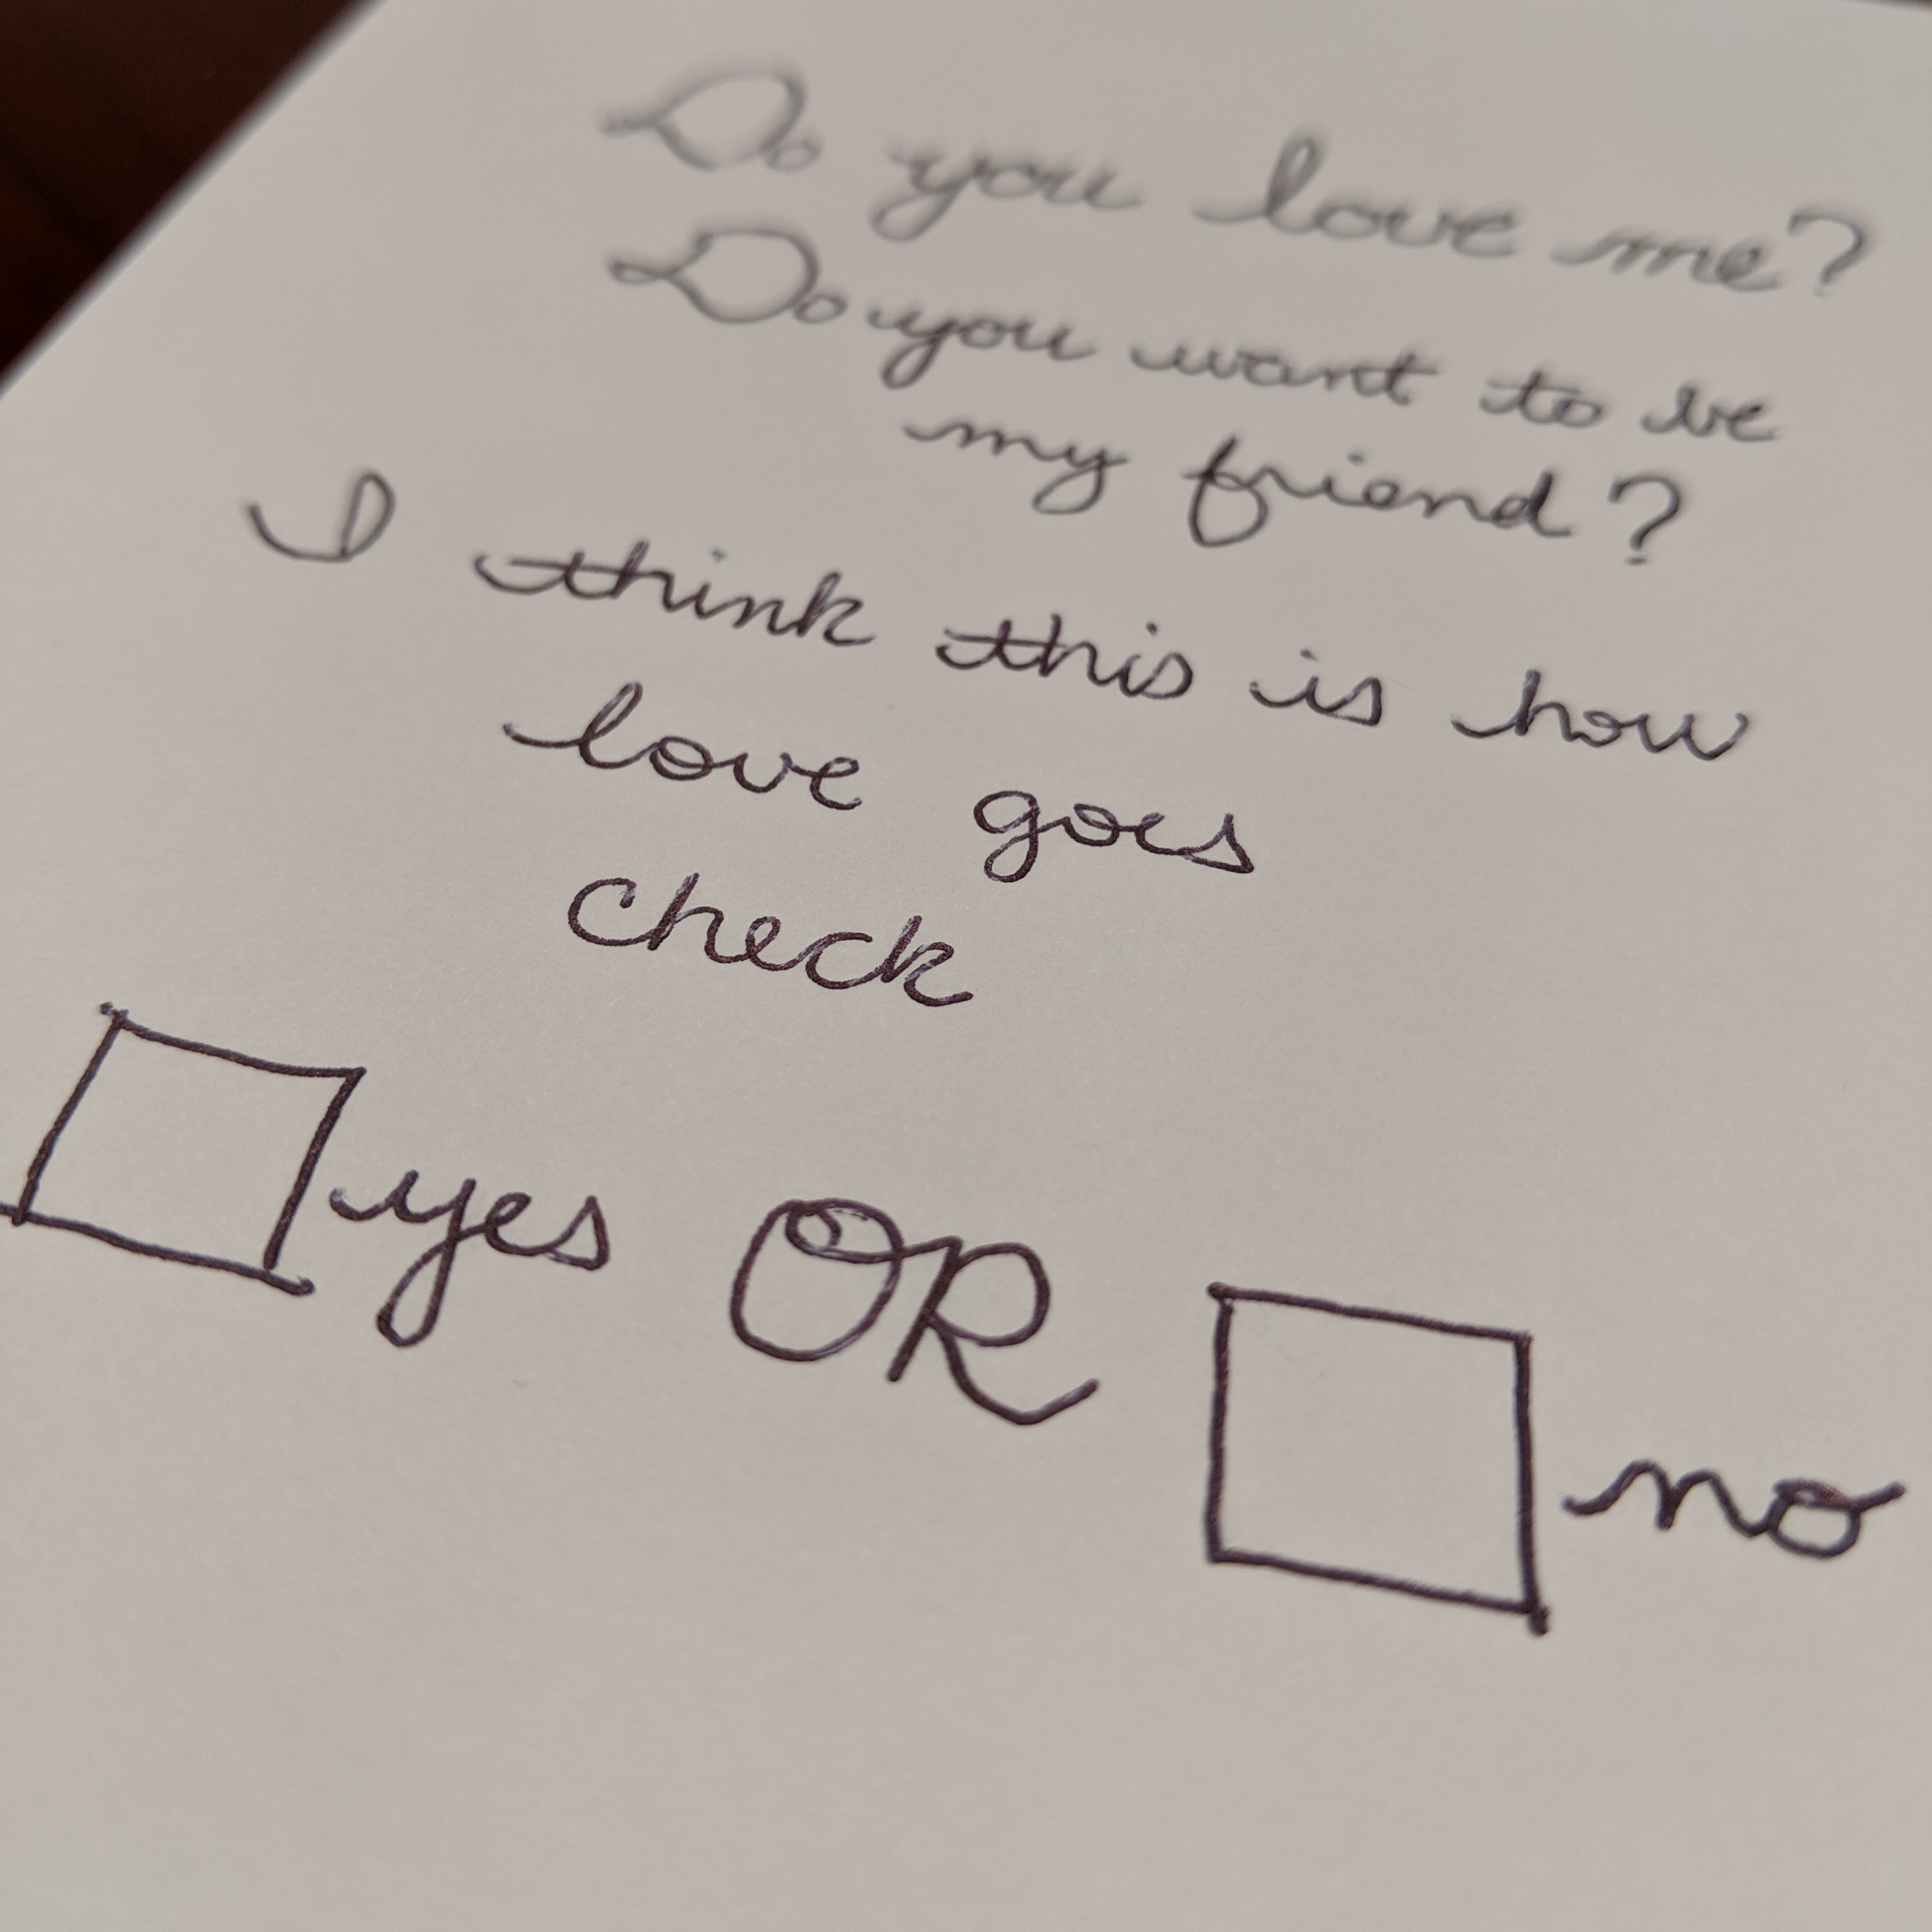 Do you love me?
Do you want to be
my friend?
I think this is how
love goes
check
yes OR no